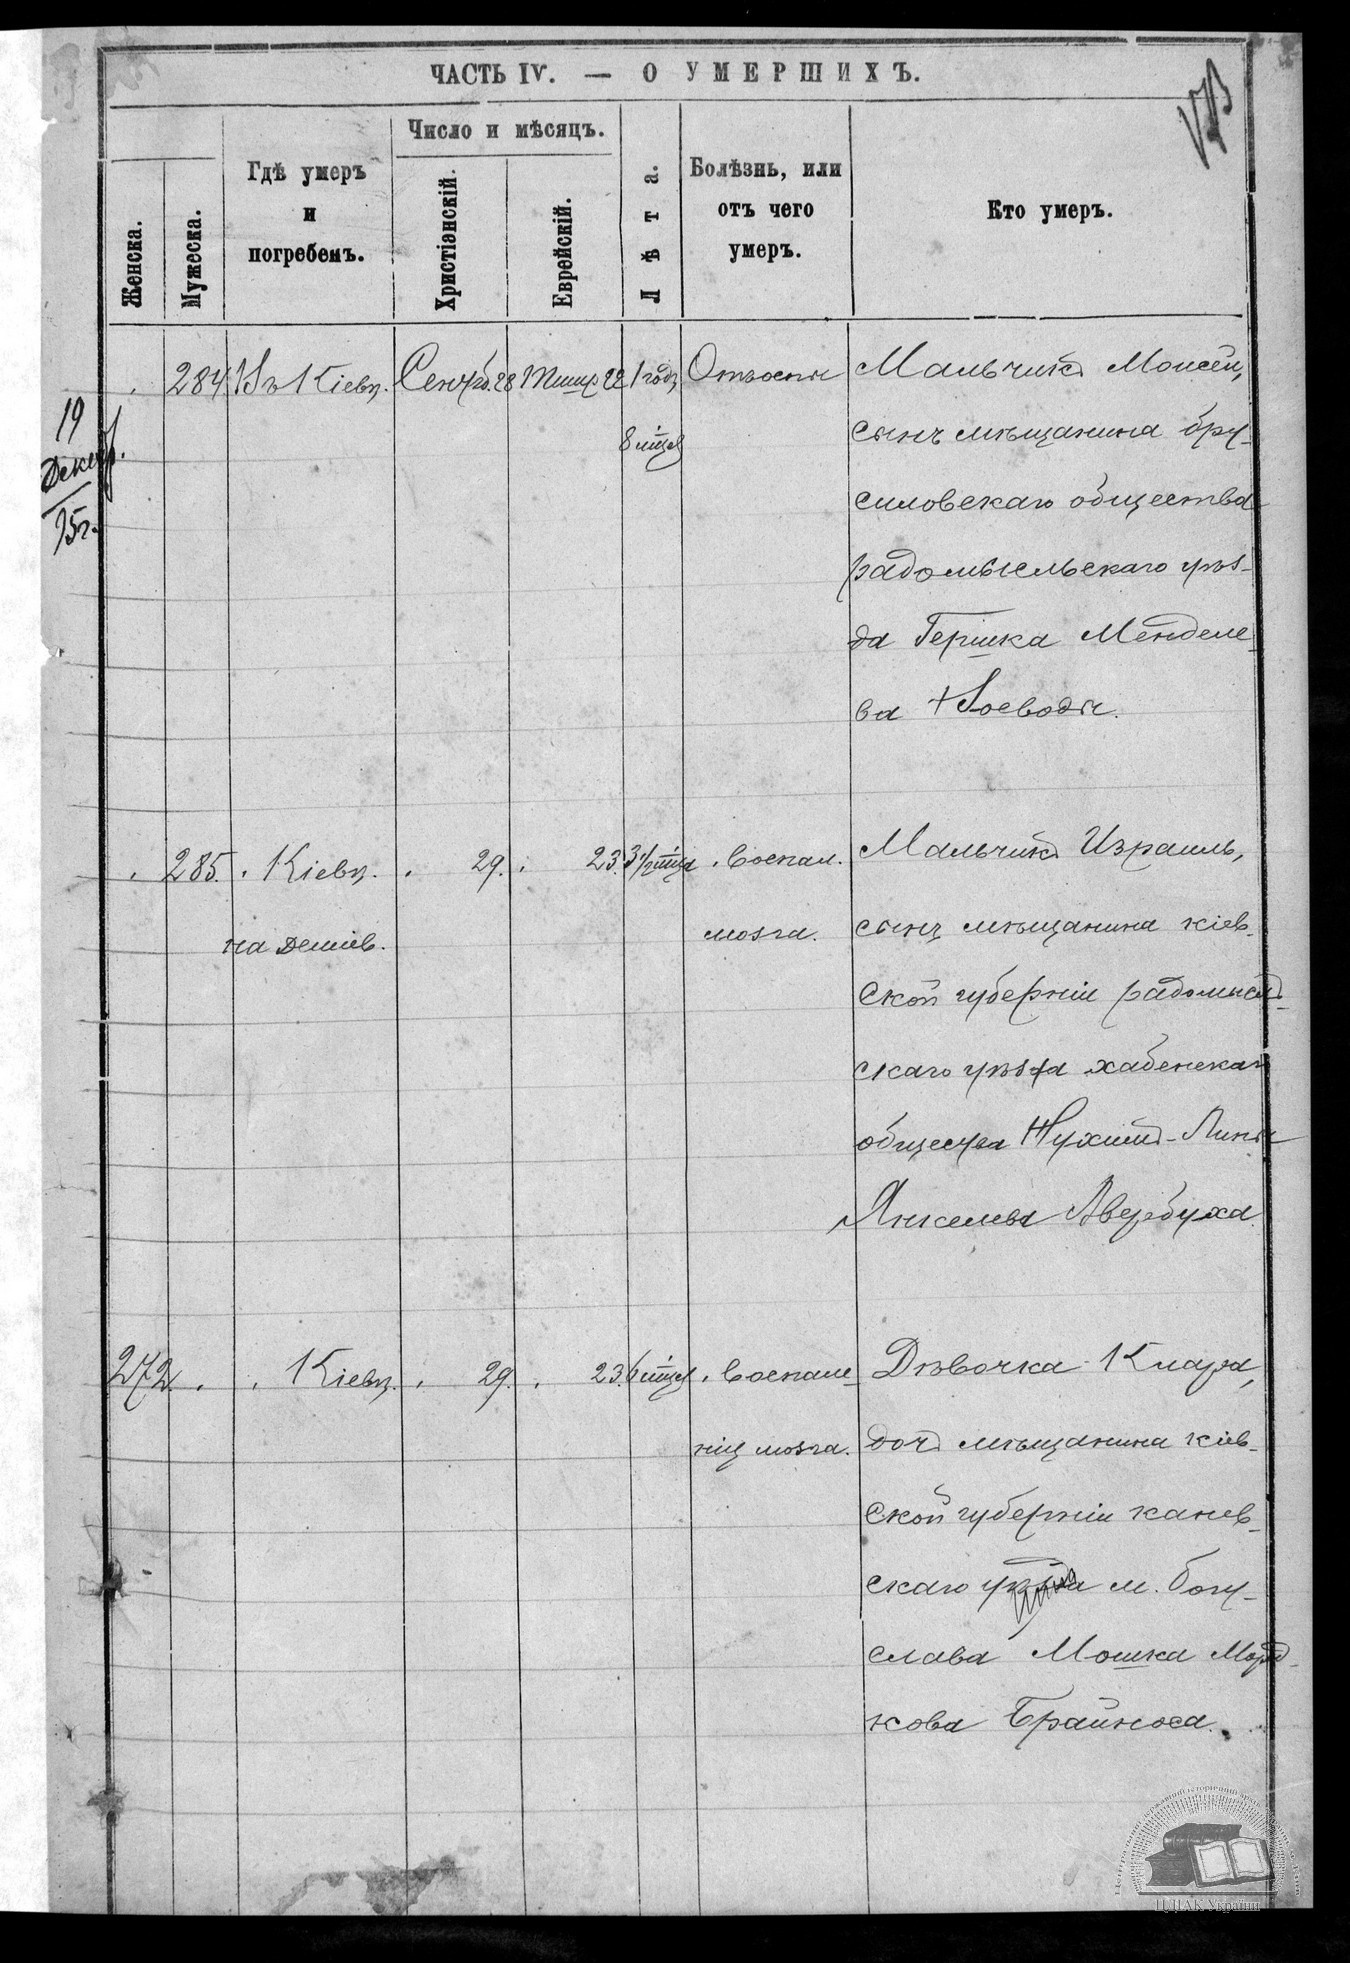 ЧАСТЬ IV. — О УМЕРШИХЪ.
Женска.
Мужеска.
Гдѣ умеръ
и
погребенъ.
Число и мѣсяцъ.
Христіэнскій.
Еврейскій.
Лѣта.
Болѣзнь, или
отъ чего
умеръ.
Кто умеръ.
19
Декабр.
95г.
284. Въ Кіевѣ. Сентяб. 28 Тишр 22 1 годъ Отъ оспы Мальчикъ Моисей,
8 мѣся сынъ мѣщанина бру-
силовскаго общества
радомысльскаго уѣз-
да Гершка Менделе-
ва Воеводы.
285. Кіевѣ. 29. 23. 3 1/2 мѣся Воспал. Мальчикъ Израиль,
на Деміев. мозга. сынъ мѣщанина кіев-
ской губерніи радомысль-
скаго уѣзда хабенскаго
общества Нухимъ-Липы
Янкелева Авербуха.
272. Кіевѣ. 29. 23. 6 мѣся Воспале- Дѣвочка Клара,
ніѣ мозга. дочь мѣщанина кіев-
ской губерніи канев-
скаго уѣзда м. Богу-
слава Мошка Морд-
кова Брайноса.
ЦДІАК України